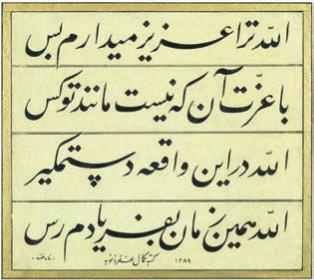 اللّه ترا عزیز میدارم بس
با عزّت آن که نیست مانند تو کس
اللّه در این واقعه دستم گیر
اللّه همین زمان بفریادم رس
۱۳۸۹